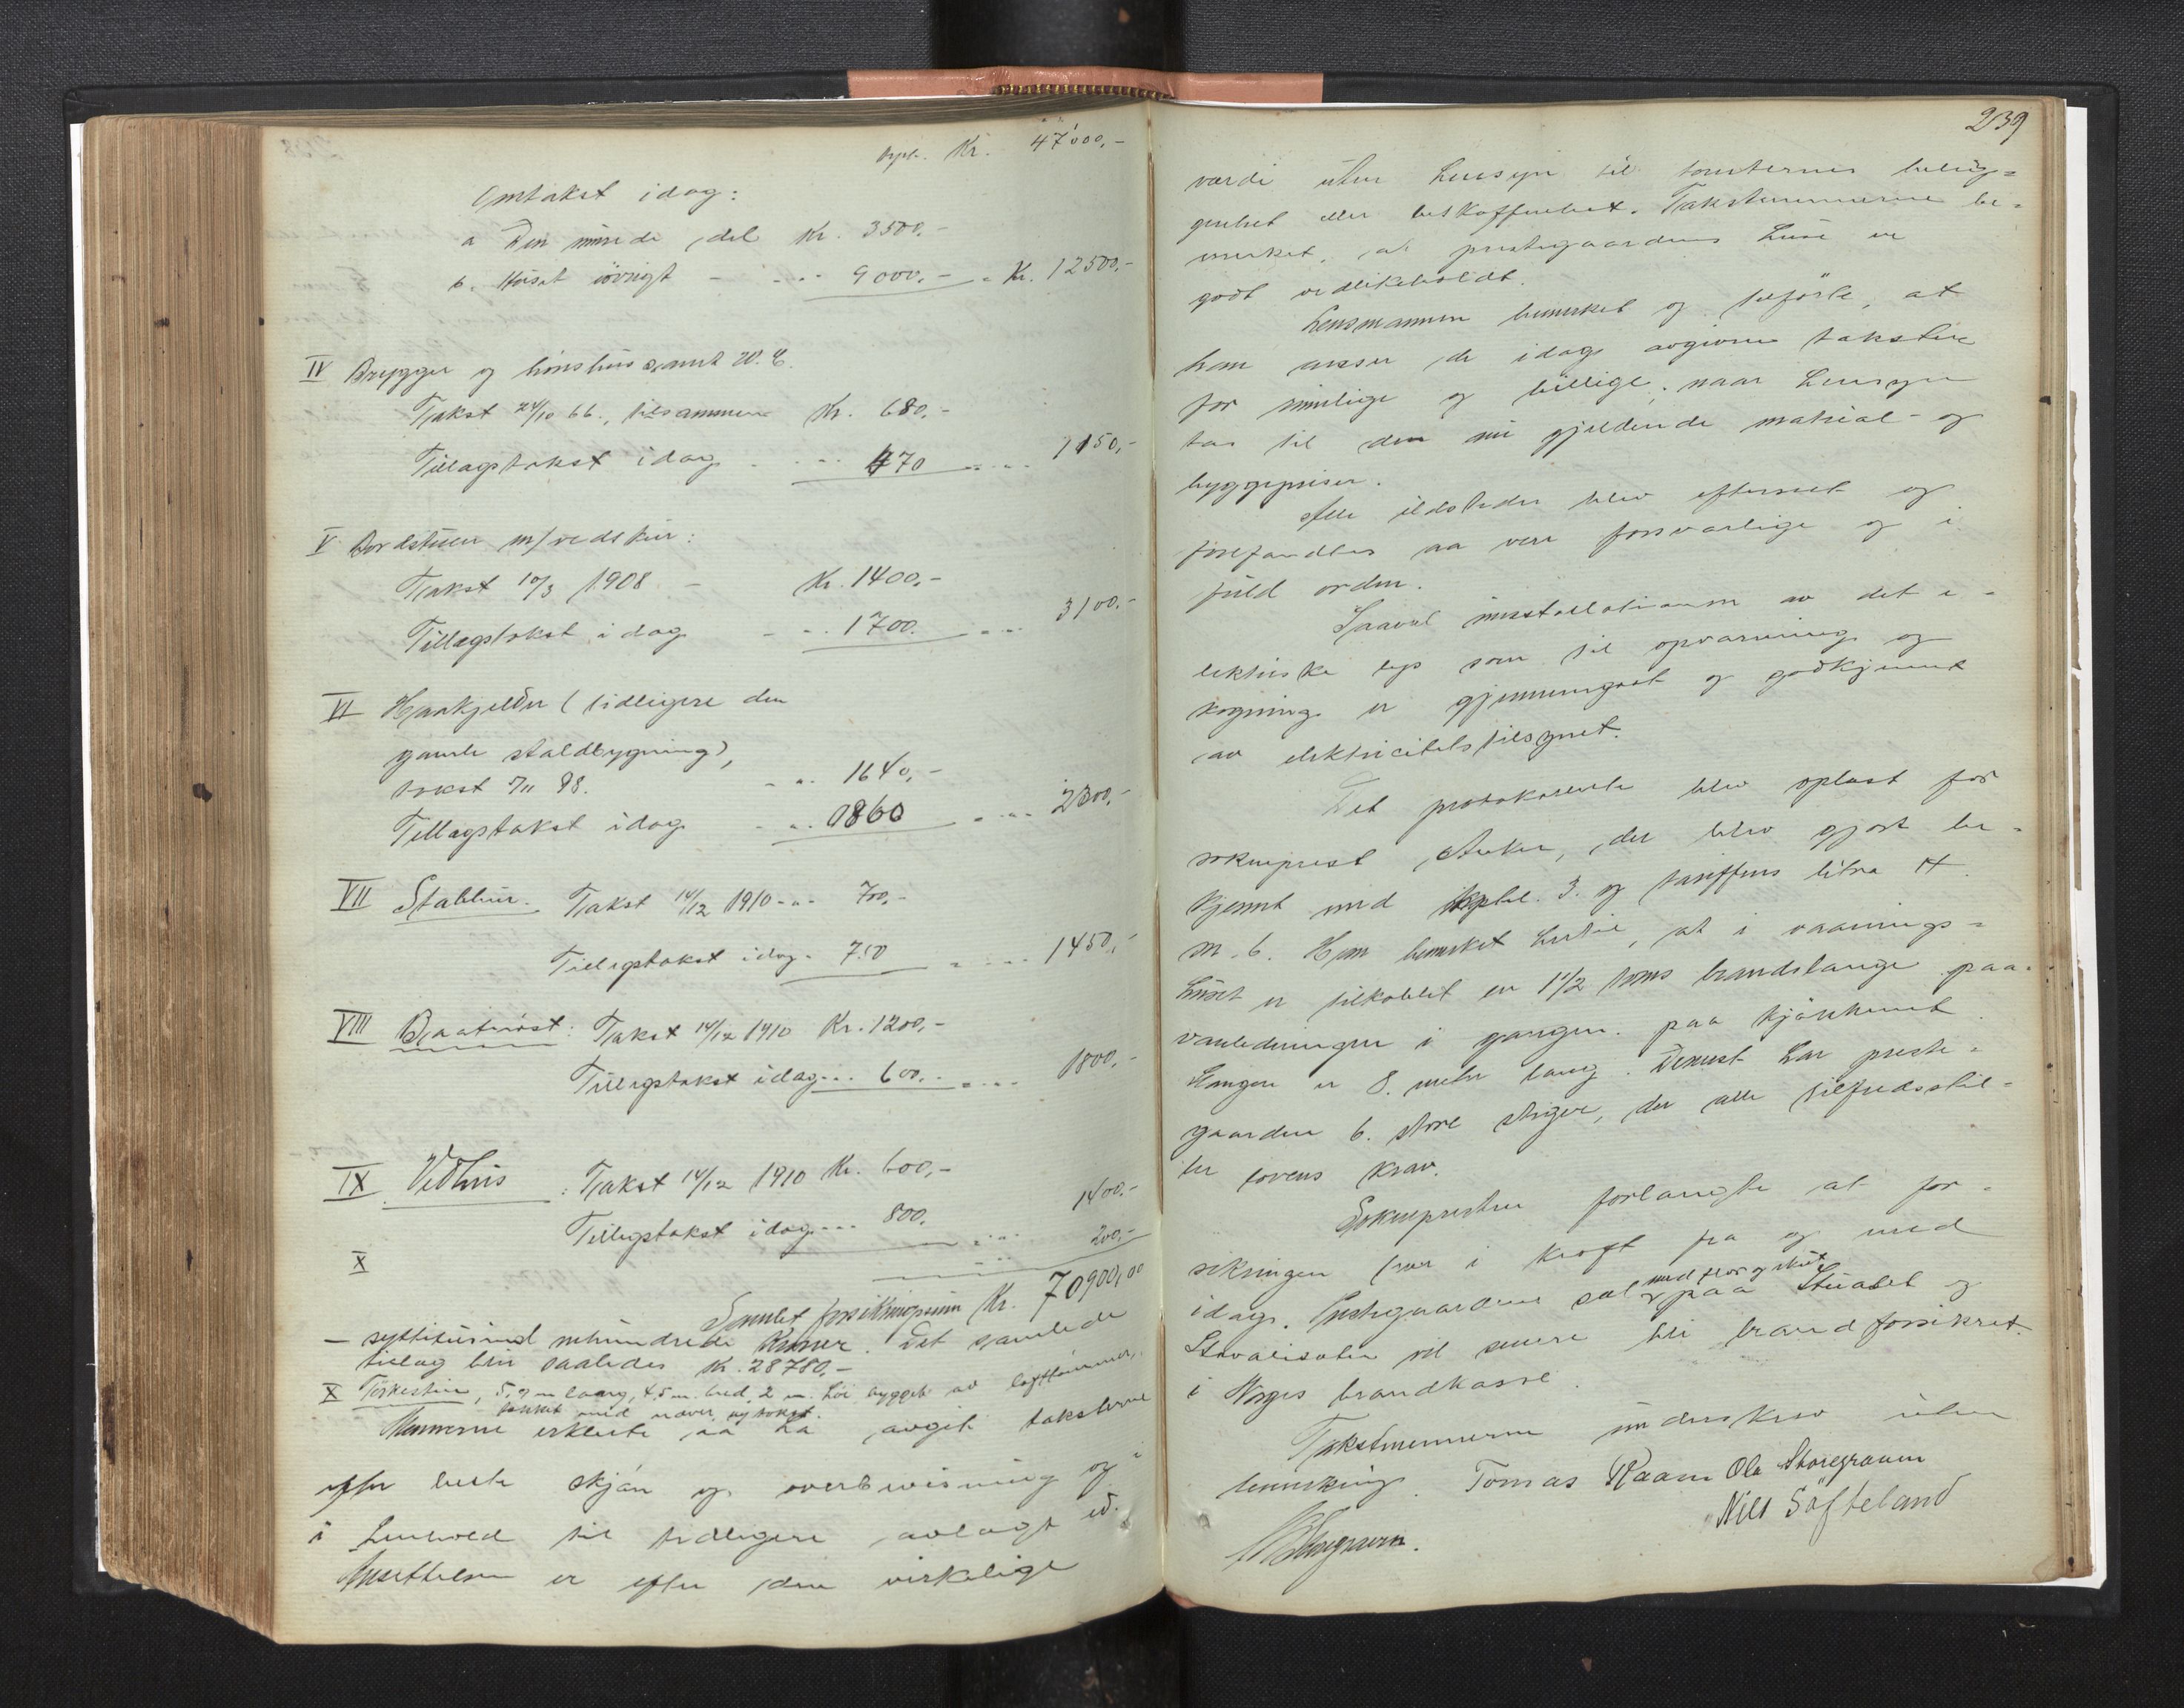 Kr. 47000,-
Omtakst idag:
a Den murede del Kr. 3500,-
b. Huset øvrigt - - " - 9000,- " Kr. 12500,-
IV Brygger og hönshus samt W.C.
Takst 24/10 66., tilsammen Kr. 680,-
Tillagstakst idag . . - " - 470 - " - 1150,-
V Bordstuen m/vedskur:
Takst 10/3 1908 - Kr. 1400,-
Tillægstakst i dag - - " 1700. - " - 3100,-
VI Havkjelder (tidligere den
gamle staldbygning),
takst 7/11 98. - " - 1640,-
Tillagstakst idag - " - 860 - " - 2300,-
VII Stabbur. Takst 14/12 1910 - " - 700,-
Tillegstakst idag - 750 - " - 1450,-
VIII Baatnöst: Takst 14/12 1910 Kr. 1200,-
Tillegstakst idag - " - 600,- - " - 1800,-
IX Vedhus : Takst 14/12 1910 Kr. 600,-
Tillegstakst idag - " - 800. - " - 1400,-
X - " - 200,-
Samlet forsikringssum Kr. 70900,00
- syttitusind nihundrede Kroner. Det samlede
tillæg blir saaledes Kr. 28780,-
X Törkestue, 5,9 m lang, 4,5 m. bred, 2 m. höi bygget av
tækket med næver, ny takst.
Mennerne erklærte aa ha avgit taksterne
efter beste skjön og overbevisning og
i henhold til tidligere avlagt ed.
Ansettelsen er efter den virkelige
239
værdi uten hensyn til tomternes belig=
genhet eller beskaffenhet. Takstmennerne be=
merket, at prestegaardens huse er
godt vedlikeholdt.
Lensmannen bemerket og tilförte, at
han anser de idag avgivne takster
for rimelige og billige, naar hensyn
tas til den nu gjeldende material- og
byggepriser.
Alle ildsteder blev efterseet og
forefandtes aa være forsvarlige og i
fuld orden.
Saavel installationen av det e-
lektriske lys som til opvarming og
kogning er gjennemgaat og godkjennt
av elektricitetstilsynet.
Det protokorerte blev oplæst for
sokneprest Anker, der blev gjort be=
kjennt med kptl. 3. og tariffens litra H.
m. 6. Han bemerket hertil, at i vaanings=
huset er tilkoblet en 1 1/2 toms brandslange paa
vanledningen i gangen. paa kjökkenet.
Slangen er 8. meter lang. Dernest har preste=
gaarden 6. store stiger, der alle tilfredsstil=
ler lovens krav.
Soknepresten forlangte at for=
sikringen trær i kraft fra og med
idag. Prestegaardens sel med flor og skut paa Stuasel og
vil senere bli brandforsikret
i Norges brandkasse.
Takstmennerne underskrev uten
bemerkning. Tomas Raaen Ola Storegraven
Nils Söfteland